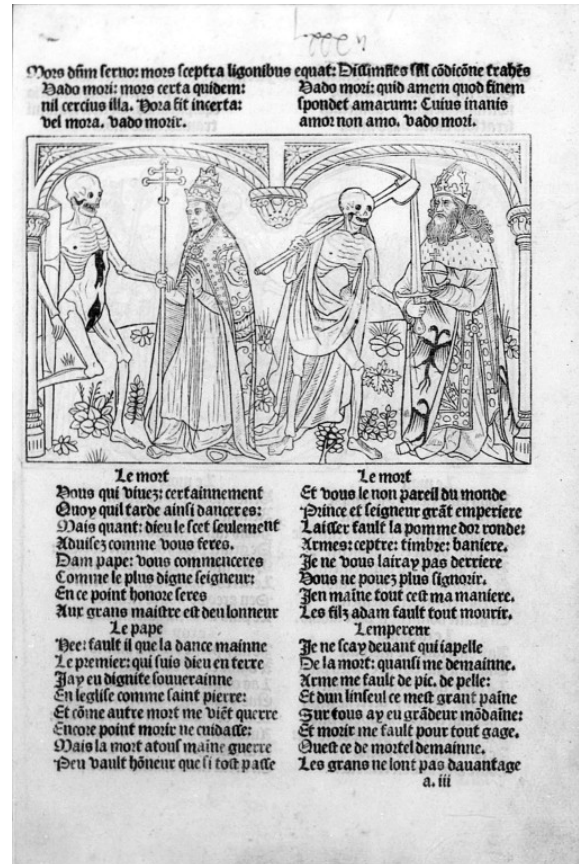 Mors dñm seruo: mors sceptra ligonibus equat: cõdicõne trahẽs
Vado mori: mors certa quidem:
nil cercius illa. Hora fit incerta:
vel mora. vado morir.
Vado mori: quid amem quod finem
spondet amarum: Cuius inanis
amor non amo. vado mori.
Le mort
Vous qui viuez: certainnement
Quoy quil tarde ainsi danceres:
Mais quant: dieu le scet seulement
Aduisez comme vous feres.
Dam pape: vous commenceres
Comme le plus digne seigneur:
En ce point honore seres
Aux grans maistre est deu lonneur
Le pape
Hee: fault il que la dance mainne
Le premier: qui suis dieu en terre
Jay eu dignite souuerainne
En leglise comme saint pierre:
Et cõme autre mort me viẽt querre
Encore point morir ne cuidasse:
Mais la mort a tous maine guerre
Peu vault hõneur que si tost passe
Le mort
Et vous le non pareil du monde
Prince et seigneur grãt emperiere
Laisser fault la pomme dor ronde:
Armes: ceptre: timbre: baniere.
Je ne vous lairay pas derriere
Vous ne pouez plus signorir.
Jen maine tout cest ma maniere.
Les filz adam fault tout mourir.
Lempereur
Je ne scay deuant qui iapelle
De la mort: quansi me demainne.
Arme me fault de pic. de pelle:
Et dun linseul ce mest grant paine
Sur tous ay eu grãdeur mõdaine:
Et morir me fault pour tout gage.
Quest ce de mortel demainne.
Les grans ne lont pas dauantage
a. iii